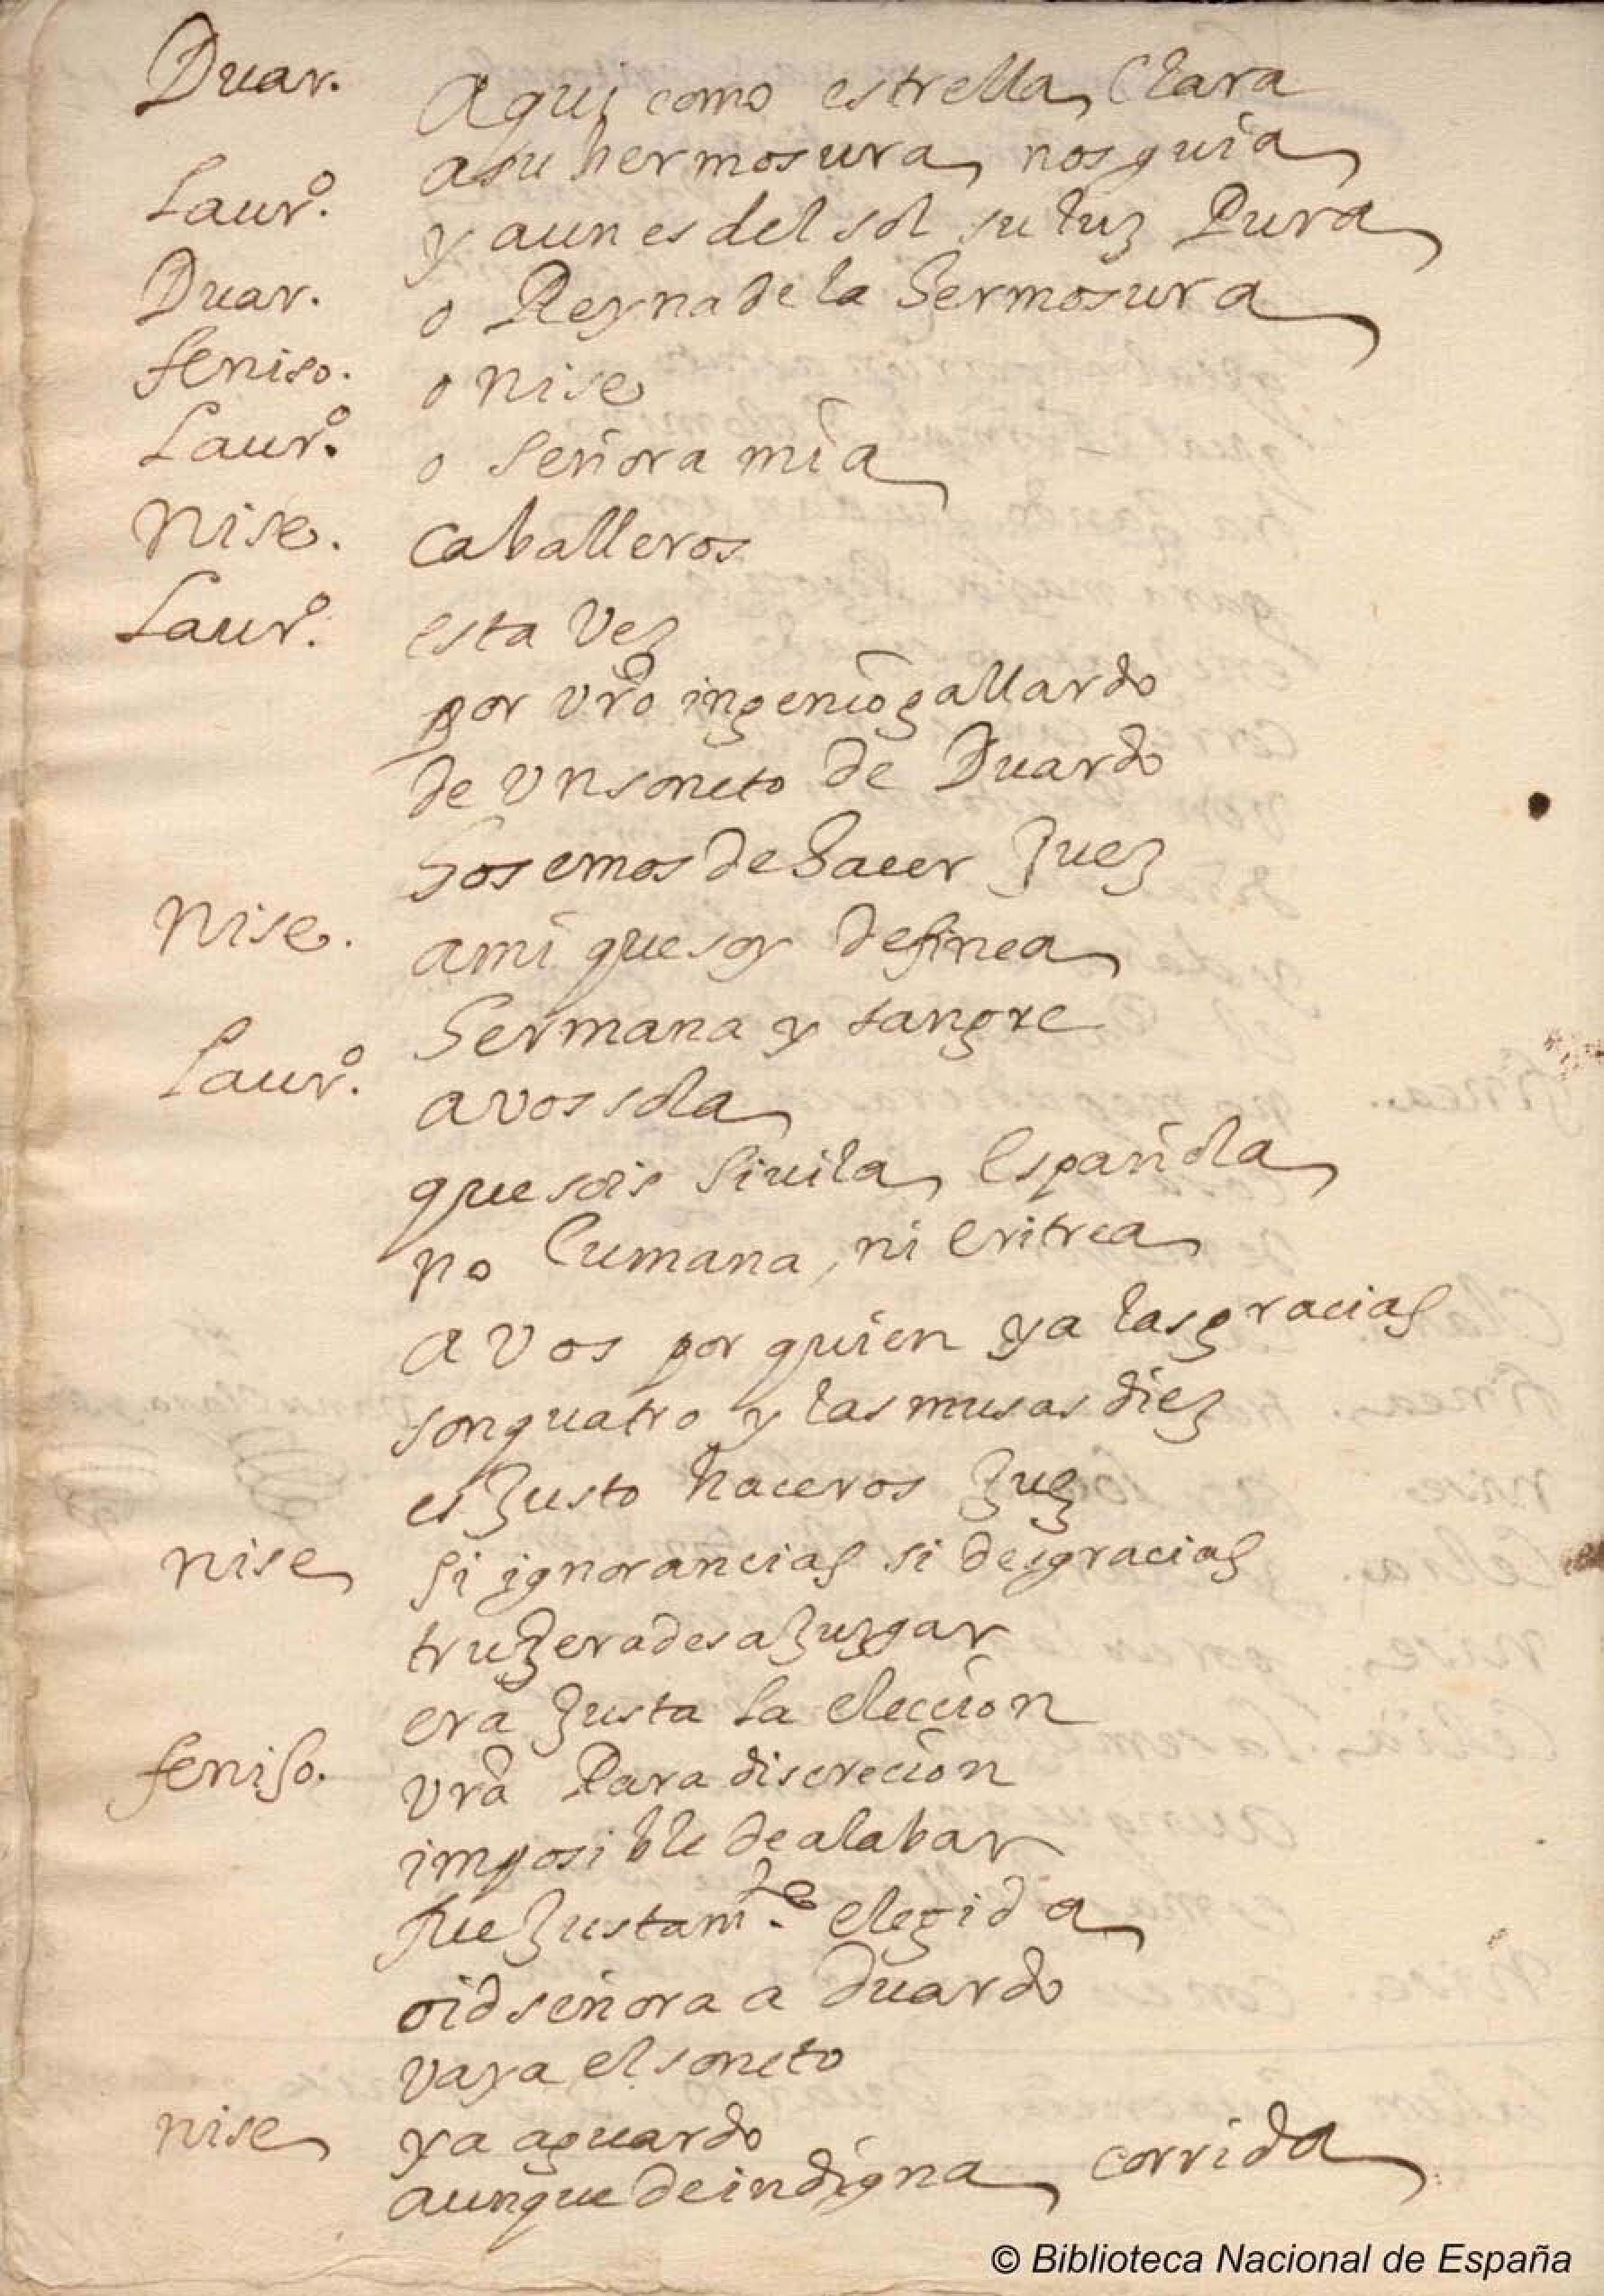 Duar. Aqui como estrella Clara
a su hermosura nos guia
Laur.º y aun es del sol su luz Pura
Duar. o Reyna de la hermosura
feniso. o nise
Laur.º o señora mia
Nise. caballeros
Laur.º esta Vez
por vr̃o ingenio gallardo
de Un soneto de Duardo
hos emos de hacer Juez
Nise. a mi que soy de finea
hermana y sangre
Laur.º a vos sola
que sois Sivila Española
no Cumana, ni Eritrea
a Vos por quien ya las gracias
son quatro y las musas diez
es Justo haceros Juez
nise si ignorancias si desgracias
truJerades a Juzgar
era Justa la eleccion
feniso. vr̃a Para discrecion
imposible de alabar
fue Justam.te elegida
oid señora a Duardo
vaya el soneto
nise ya aguardo
aunque de indigna corrida
© Biblioteca Nacional de España